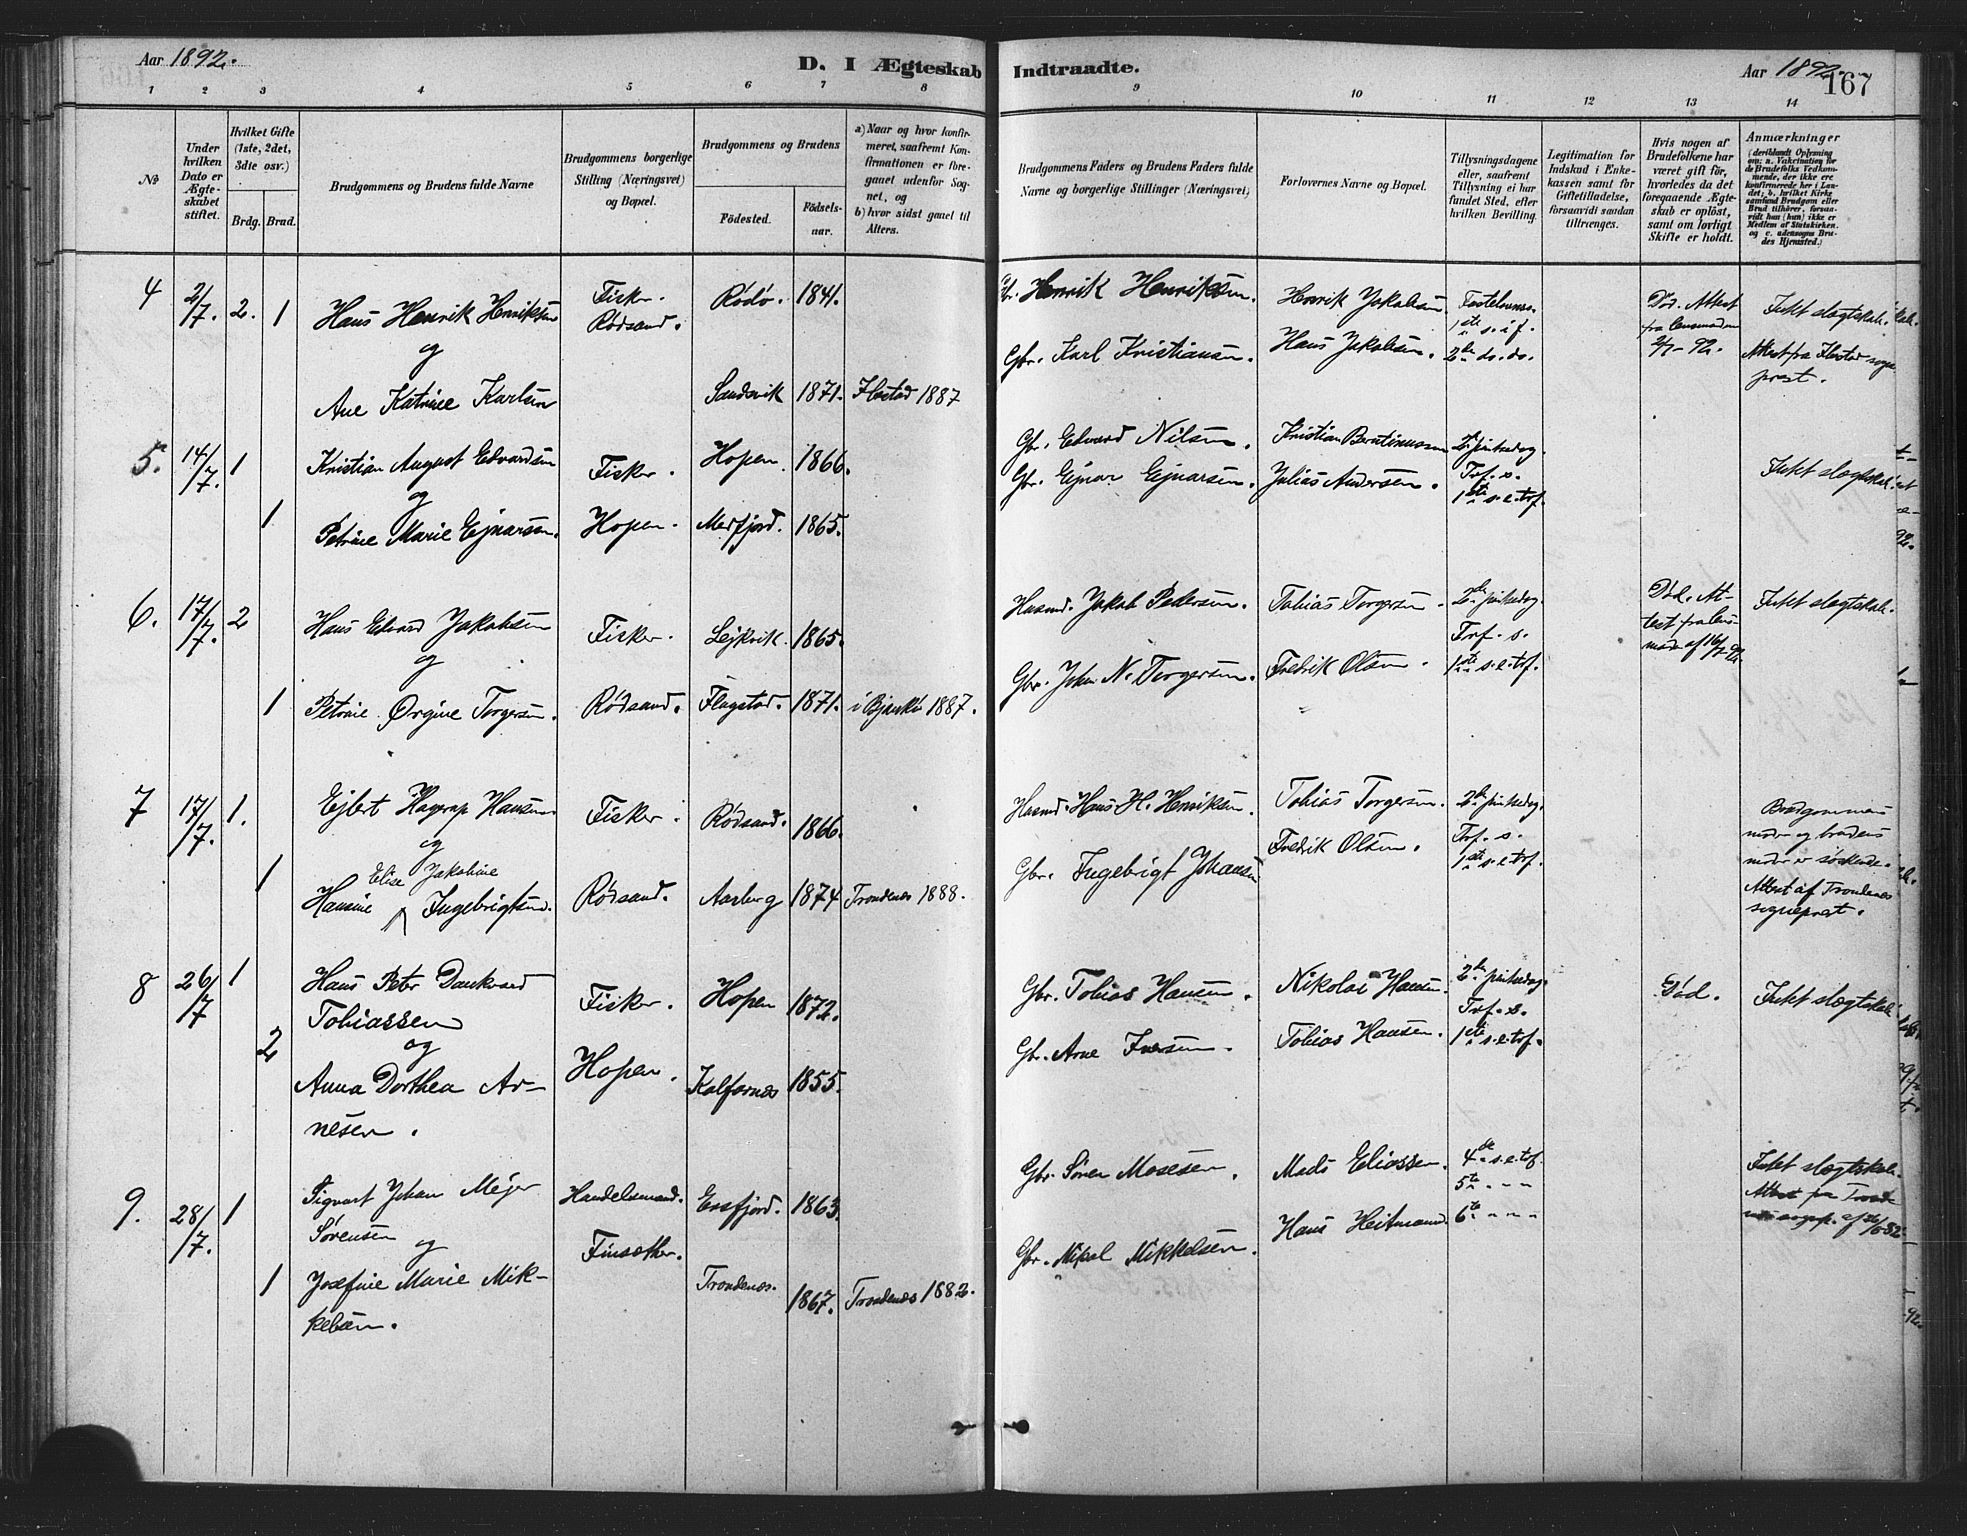 Aar 1892.
D. I Ægteskab Indtraadte.
Aar 1892.
167
1 2 3 4 5 6 7 8 9 10 11 12 13 14
No
Under hvilken Dato er Ægteskabet stiftet.
Hvilket Gifte (1ste, 2det, 3die osv.)
Brdg. Brud.
Brudgommens og Brudens fulde Navne
Brudgommens borgerlige Stilling (Næringsvei) og Bopæl.
Brudgommens og Brudens
Fødested.
Fødselsaar.
a) Naar og hvor konfirmeret, saafremt Konfirmationen er foregaaet udenfor Sognet, og
b) hvor sidst gaaet til Alters.
Brudgommens Faders og Brudens Faders fulde Navne og borgerlige Stillinger (Næringsvei)
Forlovernes Navne og Bopæl.
Tillysningsdagene eller, saafremt Tillysning ei har fundet Sted, efter hvilken Bevilling.
Legitimation for Indskud i Enkekassen samt for Giftetilladelse, forsaavidt saadan tiltrænges.
Hvis nogen af Brudefolkene har været gift før, hvorledes da det foregaaende Ægteskab er opløst, samt om lovligt Skifte er holdt.
Anmærkninger
(deriblandt Oplysning om: a. Vaktination for de Brudefolks Vedkommende, der ikke ere konfirmerede her i Landet; b. hvilket Kirkesamfund Brudgom eller Brud tilhører, forsaavidt han (hun) ikke er Medlem af Statskirken, og c. udensogns Brudes Hjemsted.)
4 2/7. 2. 1
Hans Henrik Henriksen
og
Ane Katrine Karlsen
Fisker.
Rødsand.
Rødø. 1841.
Sandvik 1871. Ibestad 1887
Gbr. Henrik Henriksen.
Gbr. Karl Kristiansen.
Henrik Jakobsen
Hans Jakobsen.
Fastelavns.
1ste s. i f.
2den do. do.
Død. Attest
fra lensmanden
2/7-92.
Intet slægtskab.
Attest fra Ibestad sogne
prest.
5. 14/7. 1 1
Kristian August Edvardsen
og
Petrine Marie Ejnarsen.
Fisker.
Hopen.
Hopen 1866.
Mefjord. 1865.
Gbr. Edvard Nilsen.
Gbr. Ejnar Ejnarsen.
Kristian Berntinussen
Julius Andersen.
2den pintsedag.
Tref. s.
1ste s. e. tref.
Intet slægtskab.
6. 17/7. 2 1
Hans Edvard Jakobsen
og
Petrine Ørgine Torgersen.
Fisker.
Rødsand.
Lejkvik. 1865.
Flagstad. 1871. i Bjarkø 1887.
Husmd. Jakob Pedersen.
Gbr. Johan N. Torgersen.
Tobias Torgersen.
Fredrik Olsen.
2den pintsedag.
Tref. s.
1ste s. e. tref.
Død. At-
test fra lens-
mden af 16/7-92.
Intet slægtskab.
7 17/7. 1. 1
Ejlert Hagerup Hansen
og
Elise Jakobine
Hansine Ingebrigtsen.
Fisker.
Rødsand.
Rødsand. 1866.
Aarberg 1874 Trondenes 1888.
Husmd. Hans H. Henriksen.
Gbr. Ingebrigt Johansen
Tobias Torgersen.
Fredrik Olsen.
2den pintsedag.
Tref. s.
1ste s. e. tref.
Brudgommens
moder og brudens
moder er søskende.
Attest af Trondenes
sogneprest.
8 26/7 1 2
Hans Peter Dankvard
Tobiassen
og
Anna Dorthea Ar-
nesen.
Fisker.
Hopen.
Hopen 1872.
Kalfarnes 1855.
Gbr. Tobias Hansen.
Gbr. Arne Iversen.
Nikolai Hansen.
Tobias Hansen.
2den pintsedag.
Tref. s.
1ste s. e. tref.
Død.
Intet slægtskab.
9. 28/7. 1 1
Sigvart Johan Mejer
Sørensen
og
Josefine Marie Mik-
kelsen.
Handelsmand.
Finsæther.
Ersfjord. 1863.
Trondenes. 1867. Trondenes 1882.
Gbr. Søren Mosesen.
Gbr. Mikal Mikkelsen.
Mads Eliassen.
Hans Heitmand.
4de s. e. tref.
5te " " "
6te " " "
Intet slægtskab.
Attest fra Trond-